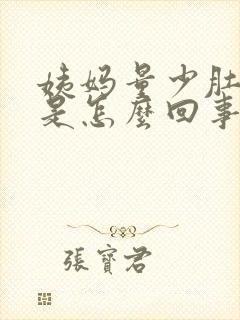 姨妈量少肚
是怎麼回事
張寶君